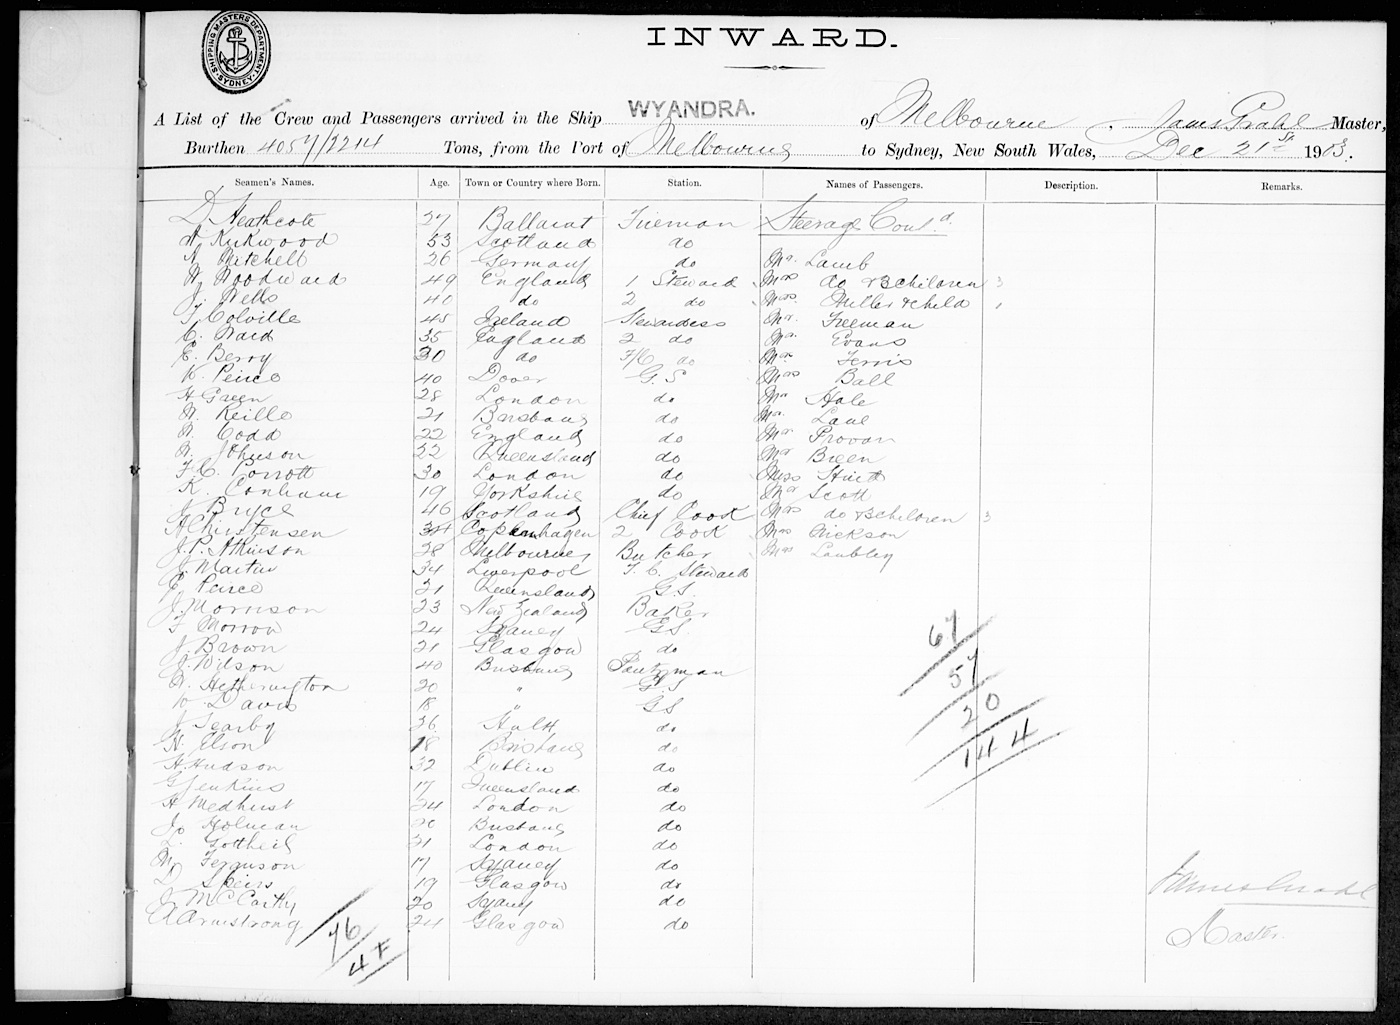 SHIPPING MASTERS DEPARTMENT. SYDNEY
INWARD.
A List of the Crew and Passengers arrived in the Ship WYANDRA. of Melbourne, James Prahl Master,
Burthen 4057/2214 Tons, from the Port of Melbourne to Sydney, New South Wales, Dec 21st 1903.
Seamen's Names. Age. Town or Country where Born. Station. Names of Passengers. Description. Remarks.
D Heathcote 27 Ballarat Fireman Steerage Cont.d
Kirkwood 53 Scotland do
Mitchell 26 Germany do Mr. Lamb
W Woodward 49 England 1 Steward Mrs do & 3 children 3
J. Wells 40 do 2 do Mrs. Miller & child 1
T. Colville 45 Ireland Stewardess Mr. Freeman
C. Ward 35 England 2 do Mr. Evans
E. Berry 30 do F/C do Mr. Ferris
K. Peirce 40 Dover G.S Mrs Ball
H Green 28 London do Mr Hale
W. Reille 21 Brisbane do Mr. Lane
W. Codd 22 England do Mr Provan
W. Johnson 22 Queensland do Mr Breen
F. C. Porrott 30 London do Miss Hiett
K. Conham 19 Yorkshire do Mr Scott
J Bryce 46 Scotland Chief Cook Mrs do & 3 children 3
A Christensen 34 Copenhagen 2 Cook Mrs Nickson
J. P. Atkinson 28 Melbourne Butcher Mrs Lambley
J. Martin 34 Liverpool F. C. Steward
E. Peirce 21 Queensland G.S.
J. Morrison 23 New Zealand Baker
F Morrow 24 Sydney G.S.
J. Brown 21 Glasgow do
J. Wilson 40 Brisbane Pantryman
Hetherington 20 " G.S
W Davis 18 " G.S
J Searby 26 Hull do
H. Elson 18 Brisbane do
H. Hudson 32 Dublin do
G Jenkins 17 Queensland do
H Medhurst 24 London do
Jo Holman 20 Brisbane do
L. Gottheil 21 London do
M. Ferguson 17 Sydney do
D Speirs 19 Glasgow do
J. McCarthy 20 Sydney do
A Armstrong 24 Glasgow do
67
57
20
144
76
47
James Prahl
Master